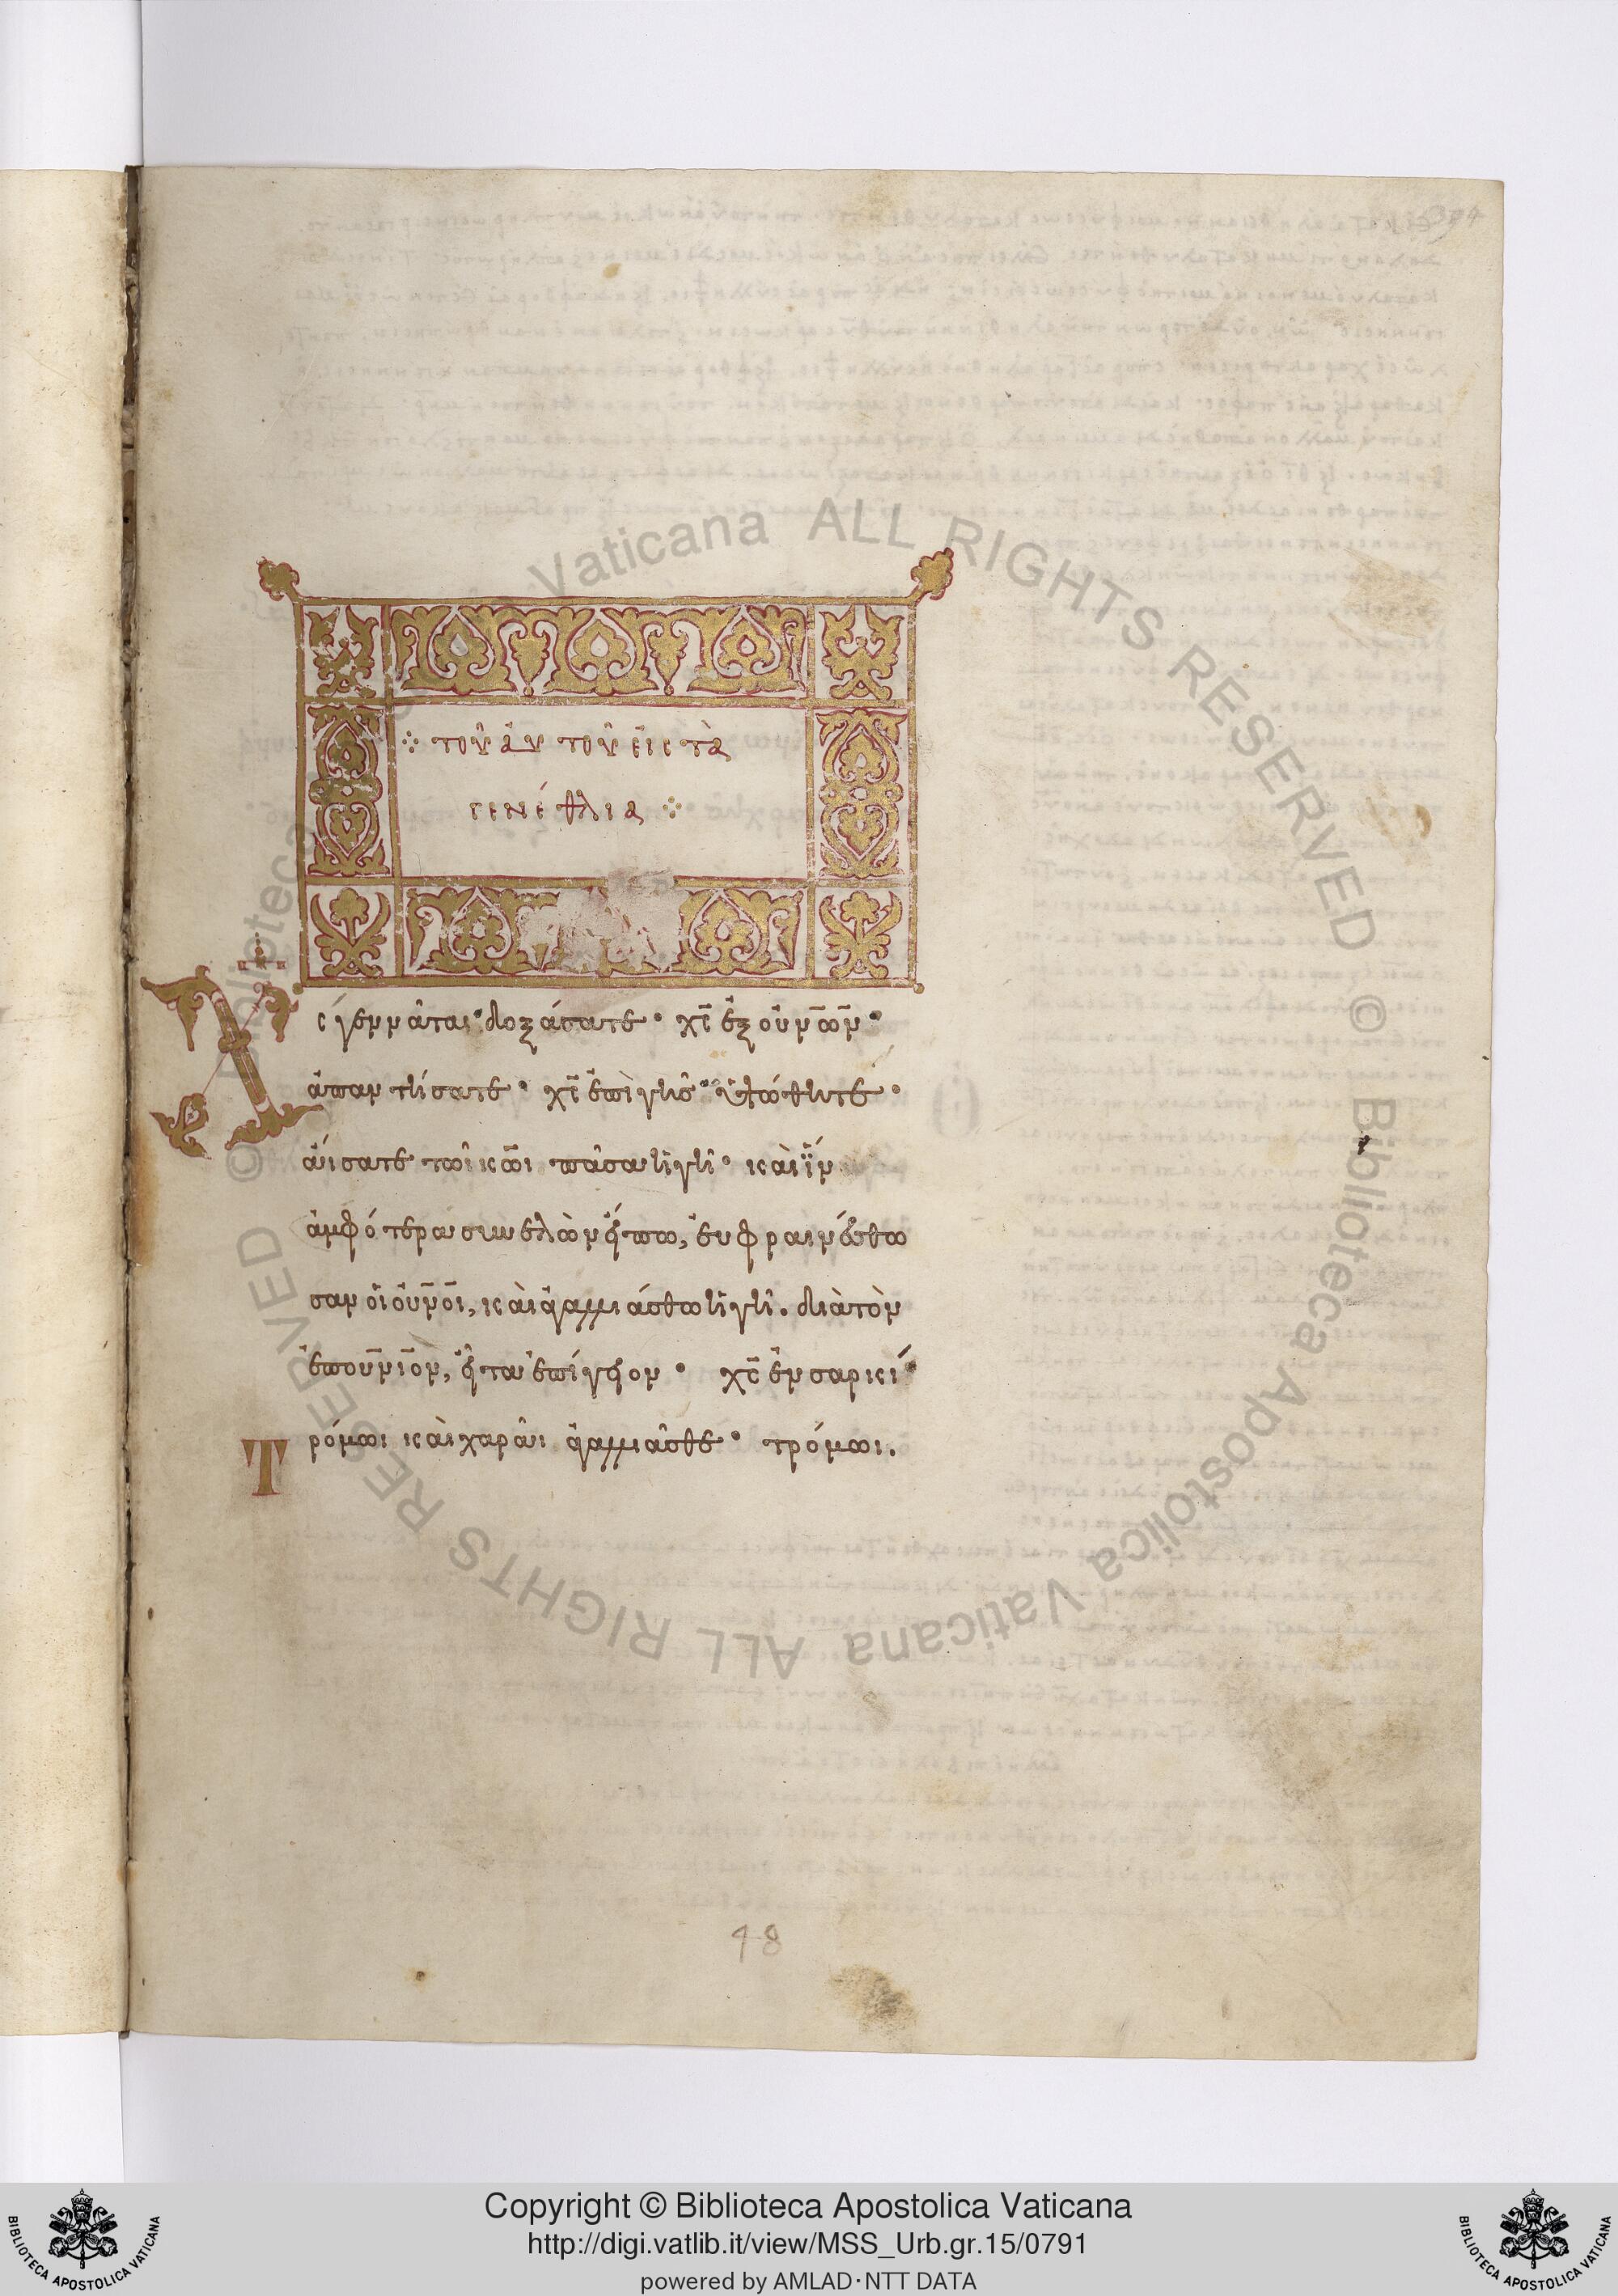 394
τοῦ ἀυτοῦ εἰς τὰ
γενέθλια
Χς γεννᾶται· δοξάσατε· χς ἐξ οὐνων·
ἀπαντήσατε· χς ἐπὶ γῆς· ὑψώθητε·
ἄισατε τῶι κωι πᾶσα ἡ γῆ· καὶ ἵν
ἀμφότερα συνελὼν εἴπω, ἐυφραινέσθω
σαν οἱ οὐνοι, καὶ ἀγαλλιάσθω ἡ γῆ. διὰ τὸν
ἐπουνιον, εἶτα ἐπίγειον· χς ἐν σαρκί·
Τρόμωι καὶ χαρᾶι ἀγαλλιᾶσθε· τρόμωι.
48
© Biblioteca Apostolica Vaticana ALL RIGHTS RESERVED © Biblioteca Apostolica Vaticana ALL RIGHTS RESERVED
BIBLIOTECA APOSTOLICA VATICANA
Copyright © Biblioteca Apostolica Vaticana
http://digi.vatlib.it/view/MSS_Urb.gr.15/0791
powered by AMLAD·NTT DATA
BIBLIOTECA APOSTOLICA VATICANA